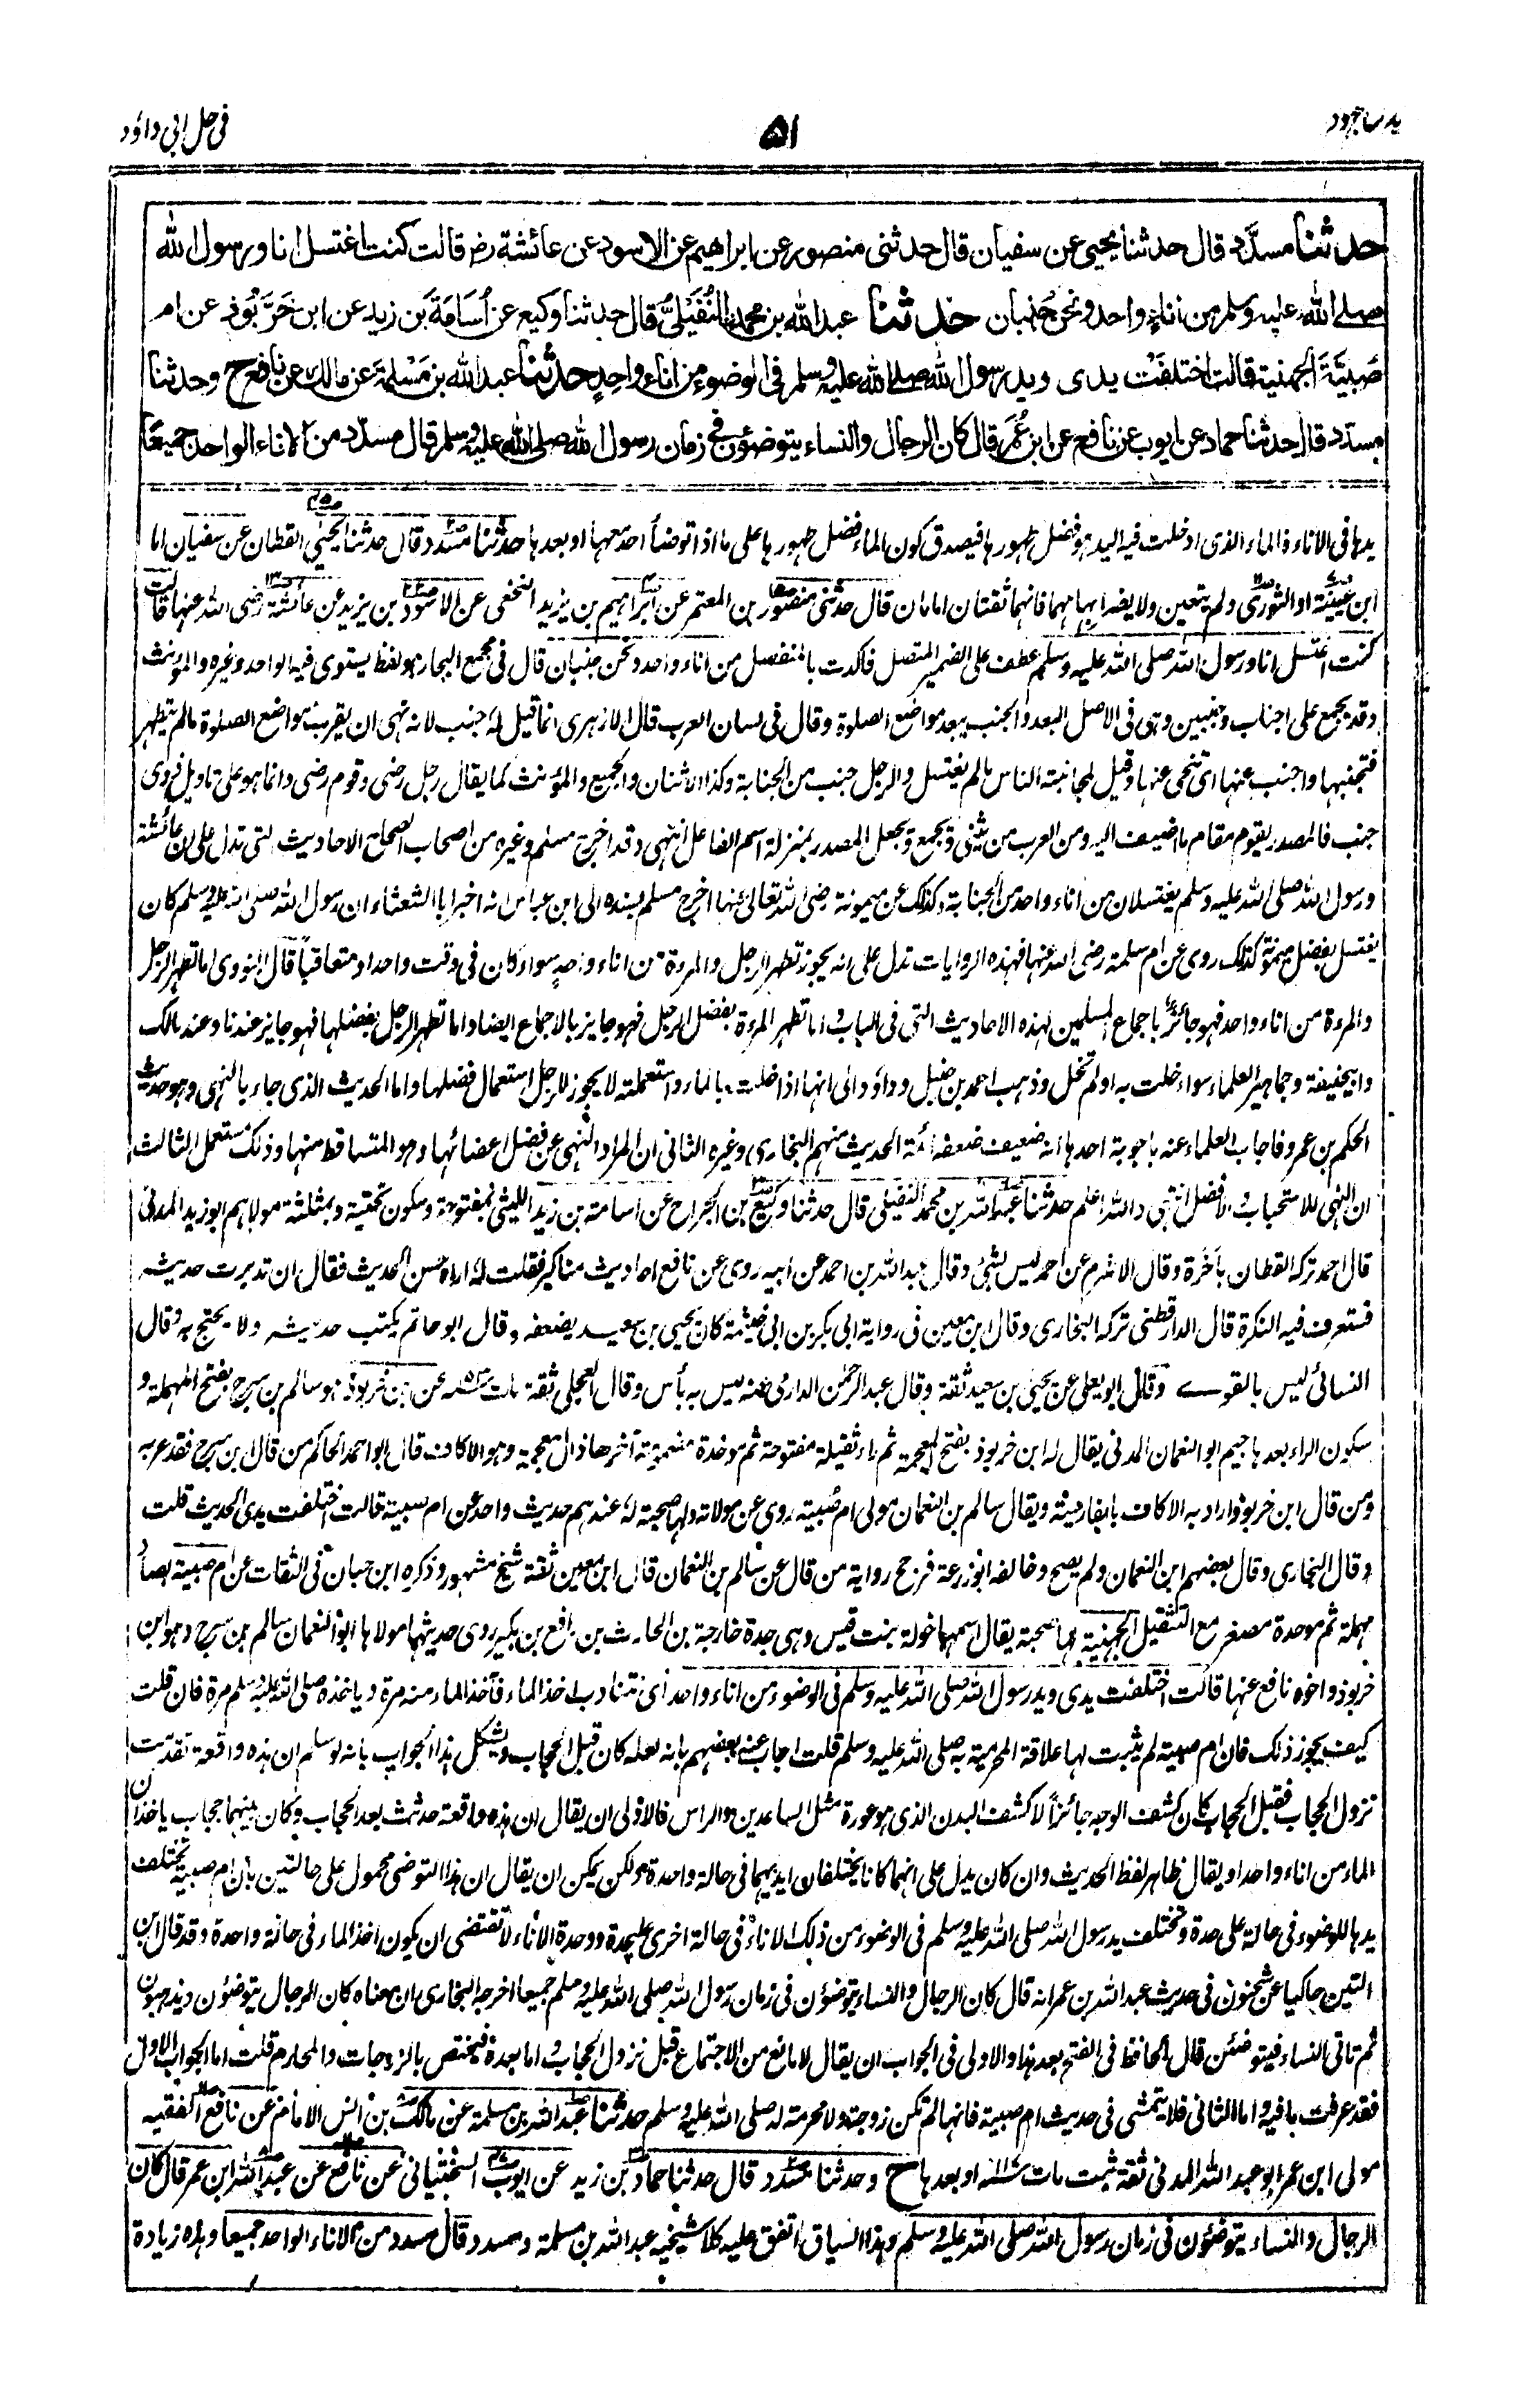 في حل ابي داؤد
۵۱
بذل المجهود
حدثنا مسدّد قال حدثنا يحيى عن سفيان قال حدثنى منصور عن ابراهيم عن الاسود عن عائشة رض قالت كنت اغتسل انا ورسول الله
صلى الله عليه وسلم من اناءٍ واحد ونحن جنبان حدثنا عبد الله بن محمد النُفَيْليُّ قال حدثنا وكيع عن اُسَامَةَ بن زيد عن ابن خَرَّبُوذ عن ام
صُبَيَّةَ الجهنية قالت اختلفَتْ يدى ويد رسول الله صلى الله عليه وسلم فى الوضوء من اناء واحدٍ حدثنا عبد الله بن مَسْلَمةَ عن مالك عن نافع ح وحدثنا
مسدد قال حدثنا حماد عن ايوب عن نافع عن ابن عُمَر قال كان الرجال والنساء يتوضئون فى زمان رسول الله صلى الله عليه وسلم قال مسدّد من الاناء الواحد جميعًا
يدها فى الاناء فالماء الذى ادخلت فيه اليد هو فضل طهورها فيصدق كون الماء فضل طهورها على ما اذا توضأ احد معها او بعدها حدثنا مسدد قال حدثنا يحيى القطان عن سفيان اما
ابن عيينة او الثورى ولم يتعين ولا يضر ابهامهما فانهما ثقتان امامان قال حدثنى منصور بن المعتمر عن ابراهيم بن يزيد النخعى عن الاسود بن يزيد عن عائشة رضى الله عنها قالت
كنت اغتسل انا ورسول الله صلى الله عليه وسلم عطف على الضمير المتصل فاكدت بالمنفصل من اناء واحد ونحن جنبان قال فى مجمع البحار هو لفظ يستوى فيه الواحد وغيره والمؤنث
وقد يجمع على اجناب وجنبين وهى فى الاصل البعد والجنب يبعد مواضع الصلوة وقال فى لسان العرب قال الازهرى انما قيل له جنب لانه نهى ان يقرب مواضع الصلوة ما لم يتطهر
فتجنبها واجنب عنها اى تنحى عنها وقيل لمجانبته الناس ما لم يغتسل والرجل جنب من الجنابة وكذا الاثنان والجميع والمؤنث كما يقال رجل رضى وقوم رضى وانما هو على تاويل ذوى
جنب فالمصدر يقوم مقام ما اضيف اليه ومن العرب من يثنى ويجمع ويجعل المصدر بمنزلة اسم الفاعل انتهى وقد اخرج مسلم وغيره من اصحاب الصحاح الاحاديث التى تدل على ان عائشة
ورسول الله صلى الله عليه وسلم يغتسلان من اناء واحد من الجنابة وكذلك عن ميمونة رضى الله تعالى عنها اخرج مسلم بسنده الى ابن عباس انه اخبر ابا الشعثاء ان رسول الله صلى الله عليه وسلم كان
يغتسل بفضل ميمونة كذلك روى عن ام سلمة رضى الله عنها فهذه الروايات تدل على انه يجوز تطهر الرجل والمرءة من اناء واحدٍ سواء كان فى وقت واحد او متعاقباً قال النووى اما تطهر الرجل
والمرءة من اناء واحد فهو جائز باجماع المسلمين لهذه الاحاديث التى فى الباب واما تطهر المرءة بفضل الرجل فهو جايز بالاجماع ايضا واما تطهر الرجل بفضلها فهو جايز عندنا وعند مالك
وابيحنيفة وجماهير العلماء سواء خلت به اولم تخل وذهب احمد بن حنبل وداؤد الى انها اذا خلت بالماء واستعملته لا يجوز للرجل استعمال فضلها واما الحديث الذى جاء بالنهى وهو حديث
الحكم بن عمرو فاجاب العلماء عنه باجوبة احدها انه ضعيف ضعفه ائمة الحديث منهم البخارى وغيره الثانى ان المراد النهى عن فضل اعضائها وهو المتساقط منها وذلك مستعمل الثالث
ان النهى للاستحباب والافضل انتهى والله اعلم حدثنا عبد الله بن محمد النفيلى قال حدثنا وكيع بن الجراح عن اسامة بن زيد الليثى بمفتوحة وسكون تحتية وبمثلثة مولاهم ابو زيد المدنى
قال احمد تركه القطان بآخرة وقال الاثرم عن احمد ليس بشئ وقال عبد الله بن احمد عن ابيه روى عن نافع احاديث مناكير فقلت له اراه حسن الحديث فقال ان تدبرت حديثه
فستعرف فيه النكرة قال الدارقطنى تركه البخارى وقال ابن معين فى رواية ابى بكر بن ابى خيثمة كان يحيى بن سعيد يضعفه وقال ابو حاتم يكتب حديثه ولا يحتج به وقال
النسائى ليس بالقوى وقال ابو يعلى عن يحيى بن سعيد ثقة وقال عبد الرحمن الدارمى عنه ليس به بأس وقال العجلى ثقة مات ۱۵۳ عن ابن خربوذ هو سالم بن سرج بفتح المهملة و
سكون الراء بعدها جيم ابو النعمان المدنى يقال له ابن خربوذ بفتح المعجمة ثم راء ثقيلة مفتوحة ثم موحدة مضمومة آخرها ذال معجمة وهو الاكاف قال ابو احمد الحاكم من قال ابن سرج فقد عربه
ومن قال ابن خربوذ اراد به الاكاف بالفارسية ويقال سالم بن النعمان مولى ام صُبية روى عن مولاته ولها صحبة له عندهم حديث واحد عن ام صبية قالت اختلفت يدى الحديث قلت
وقال البخارى وقال بعضهم ابن النعمان ولم يصح وخالفه ابو زرعة فرجح رواية من قال عن سالم بن النعمان قال ابن معين ثقة شيخ مشهور وذكره ابن حبان فى الثقات عن ام صبية بصاد
مهملة ثم موحدة مصغر مع التثقيل الجهنية لها صحبة يقال اسمها خولة بنت قيس وهى جدة خارجة بن الحارث بن رافع بن بكير روى حديثها مولاها ابو النعمان سالم بن سرج وهو ابن
خربوذ واخوه نافع عنها قالت اختلفت يدى ويد رسول الله صلى الله عليه وسلم فى الوضوء من اناء واحد اى نتناوب اخذ الماء فآخذ الماء منه مرة وياخذه صلى الله عليه وسلم مرة فان قلت
كيف يجوز ذلك فان ام صبية لم يثبت لها علاقة المحرمية به صلى الله عليه وسلم قلت اجاب عنه بعضهم بانه لعله كان قبل الحجاب ويشكل هذا الجواب بانه لو سلم ان هذه واقعة تقدمت
نزول الحجاب فقبل الحجاب كان كشف الوجه جائزاً لا كشف البدن الذى هو عورة مثل الساعدين والراس فالاولى ان يقال ان هذه واقعة حدثت بعد الحجاب وكان بينهما حجاب ياخذان
الماء من اناء واحد او يقال ظاهر لفظ الحديث وان كان يدل على انهما كانا يختلفان ايديهما فى حالة واحدة ولكن يمكن ان يقال ان هذا التوضى محمول على حالتين بان ام صبية تختلف
يدها للوضوء فى حالة على حدة وتختلف يد رسول الله صلى الله عليه وسلم فى الوضوء من ذلك الاناء فى حالة اخرى عليحدة ووحدة الاناء لا تقتضى ان يكون اخذ الماء فى حالة واحدة وقد قال ابن
التين حاكيا عن سحنون فى حديث عبد الله بن عمر انه قال كان الرجال والنساء يتوضئون فى زمان رسول الله صلى الله عليه وسلم جميعا اخرجه البخارى ان معناه كان الرجال يتوضئون ويذهبون
ثم تاتى النساء فيتوضئن قال الحافظ فى الفتح بعد نها والاولى فى الجواب ان يقال لا مانع من الاجتماع قبل نزول الحجاب واما بعده فيختص بالزوجات والمحارم قلت اما الجواب الاول
فقد عرفت ما فيه واما الثانى فلا يتمشى فى حديث ام صبية فانها لم تكن زوجة ولا محرمة له صلى الله عليه وسلم حدثنا عبد الله بن مسلمة عن مالك بن انس الامام عن نافع الفقيه
مولى ابن عمر ابو عبد الله المدنى ثقة ثبت مات ۱۱۷ او بعدها ح وحدثنا مسدد قال حدثنا حماد بن زيد عن ايوب السختيانى عن نافع عن عبد الله ابن عمر قال كان
الرجال والنساء يتوضئون فى زمان رسول الله صلى الله عليه وسلم وهذا السياق اتفق عليه كلا شيخيه عبد الله بن مسلمة ومسدد قال مسدد من الاناء الواحد جميعا وهذه زيادة